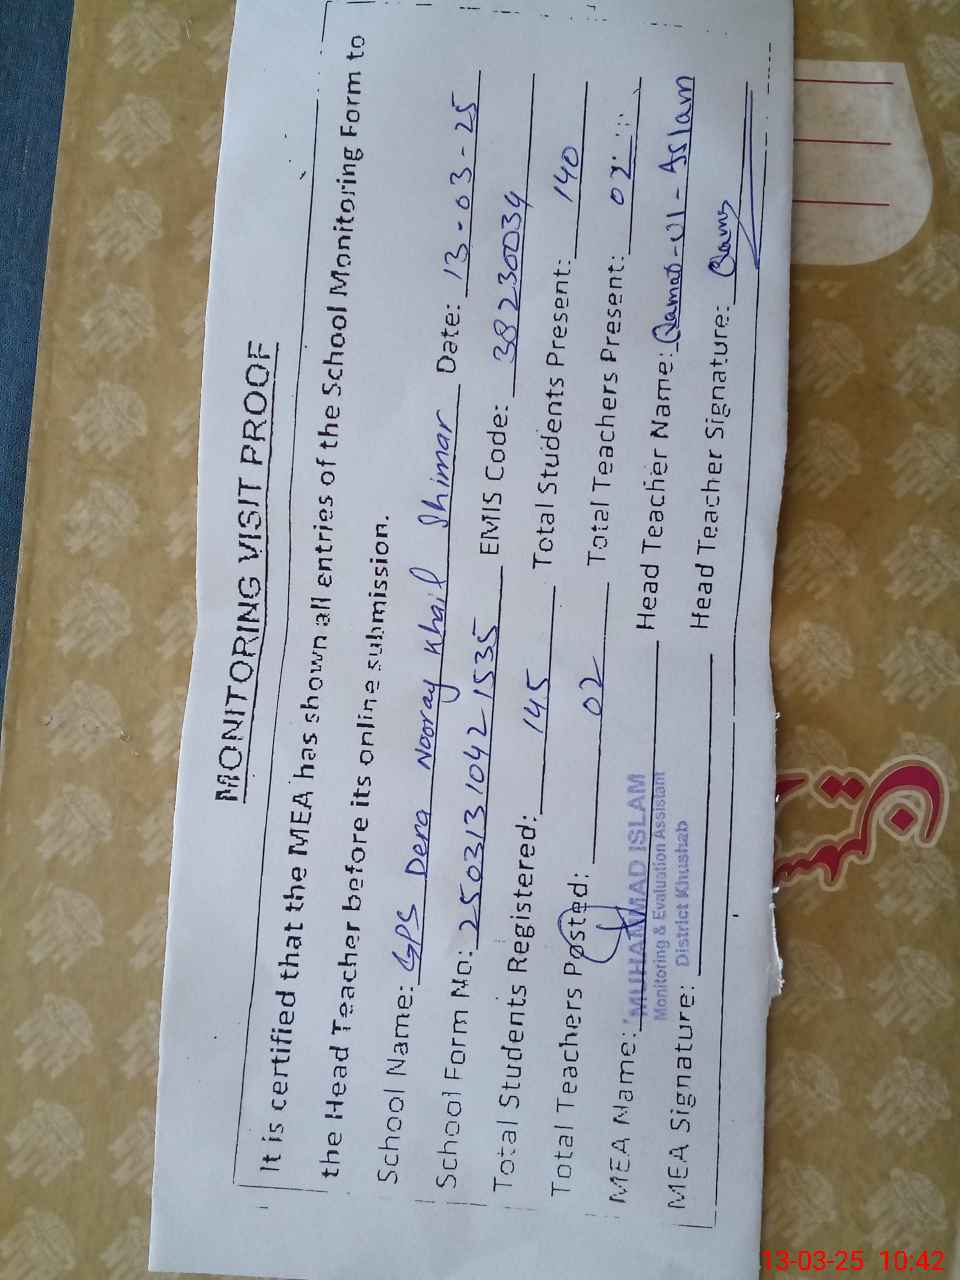 MONITORING VISIT PROOF
It is certified that the MEA has shown all entries of the School Monitoring Form to
the Head Teacher before its online submission.
School Name: GPS Dera Nooray Khail Shimar Date: 13-03-25
School Form No: 2503131042 1535 EMIS Code: 38230034
Total Students Registered: 145 Total Students Present: 140
Total Teachers Posted: 02 Total Teachers Present: 02
MEA Name: MUHAMMAD ISLAM Head Teacher Name: Qamar-Ul-Islam
Monitoring & Evaluation Assistant
MEA Signature: District Khushab Head Teacher Signature:
13-03-25 10:42